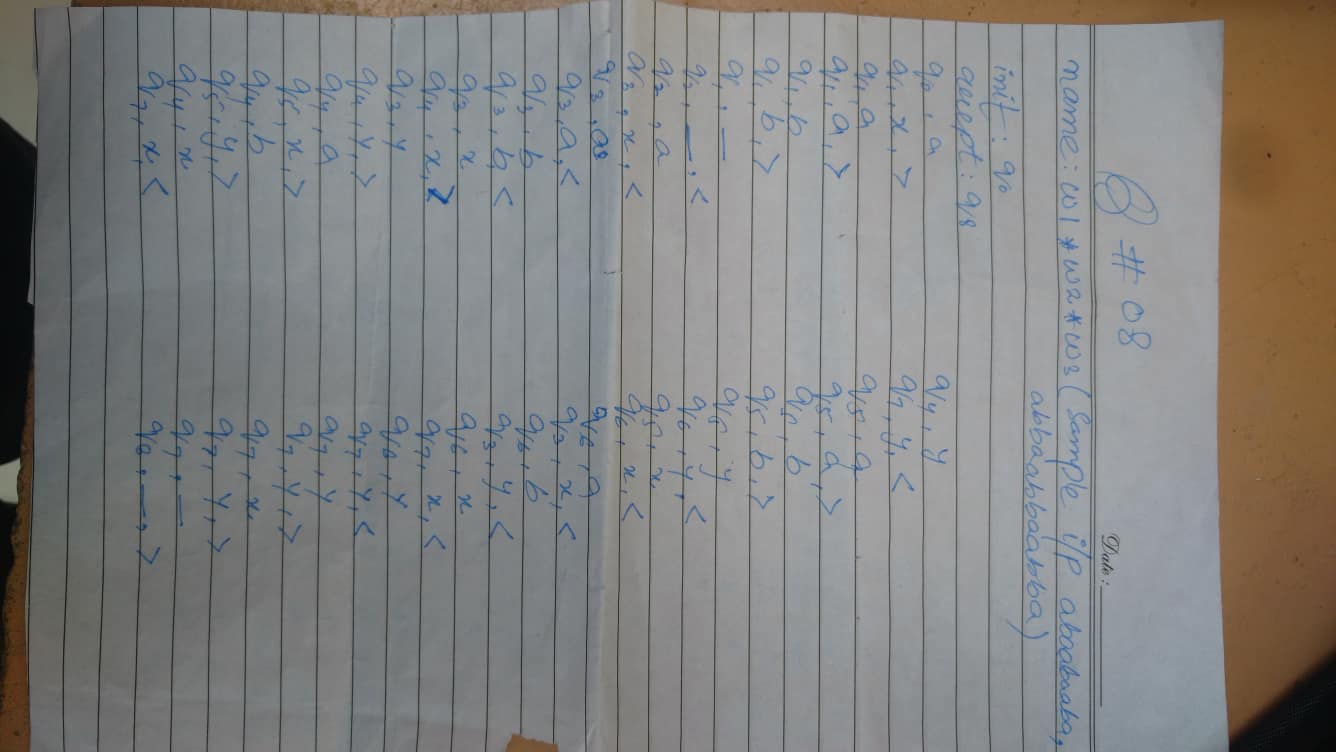 Q # 08
Date:
name: w1 * w2 * w3 (Sample i/p abaabaaba,
abbaabbaabba)
init: q0
accept: q8
q0, a
q1, x, >
q1, a
q1, a, >
q1, b
q1, b, >
q1, _
q2, _, <
q2, a
q3, x, <
q3, a
q3, a, <
q3, b
q3, b, <
q3, x
q4, x, >
q3, y
q4, y, >
q4, a
q5, x, >
q4, b
q5, y, >
q4, x
q7, x, <
q4, y
q7, y, <
q5, a
q5, a, >
q5, b
q5, b, >
q5, y
q6, y, <
q5, x
q6, x, <
q6, a
q3, x, <
q6, b
q3, y, <
q6, x
q7, x, <
q6, y
q7, y, <
q7, y
q7, y, >
q7, x
q7, y, >
q7, _
q8, _, >